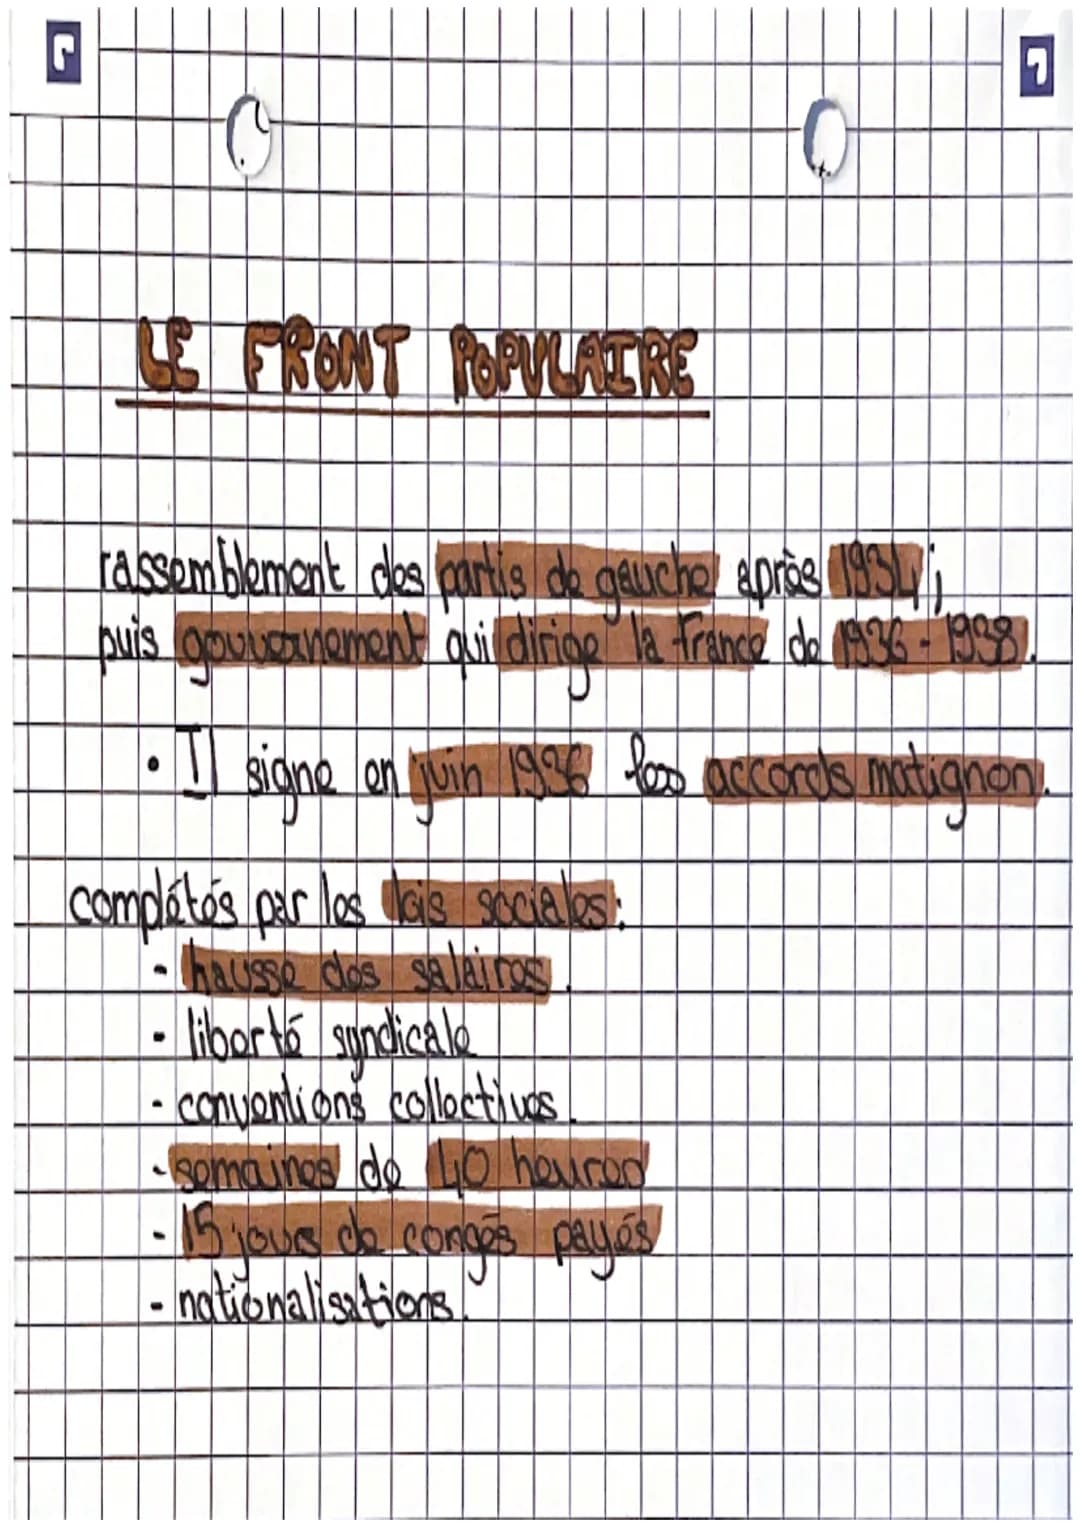 LE FRONT POPULAIRE
rassemblement des partis de gauche après 1934 ;
puis gouvernement qui dirige la france de 1936 - 1938.
• Il signe en juin 1936 les accords matignon.
complétés par les lois sociales :
- hausse des salaires.
- liberté syndicale
- conventions collectives.
- semaines de 40 heures
- 15 jours de congés payés
- nationalisations.